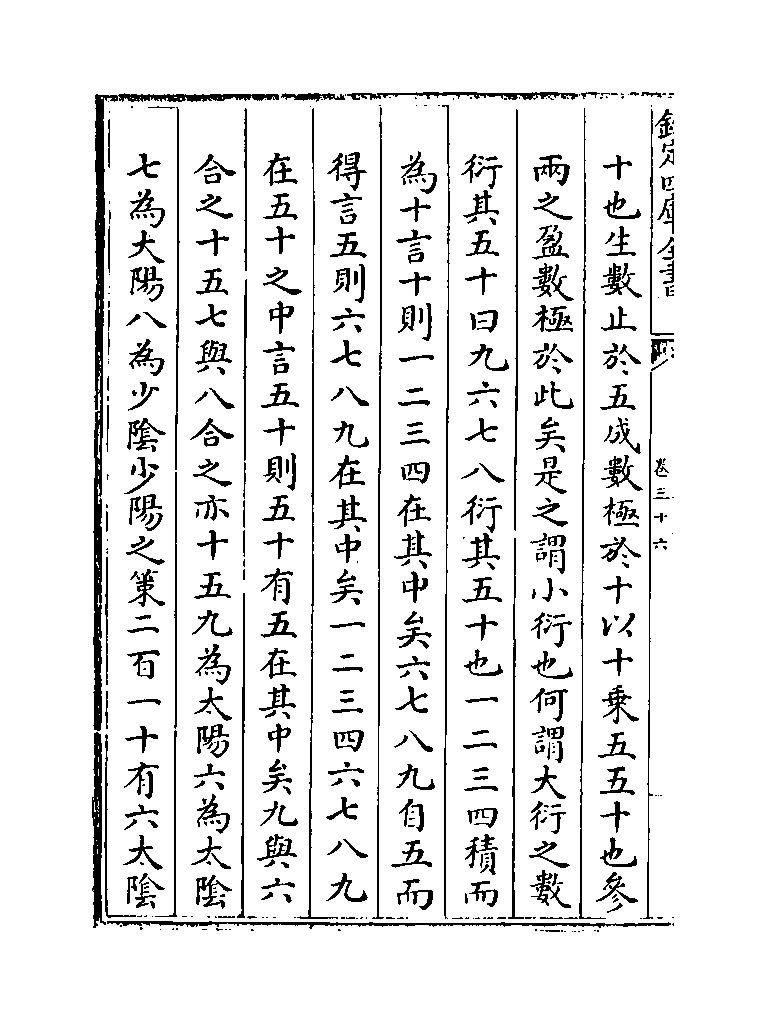 欽定四庫全書
卷三十六
十也生數止於五成數極於十以十乗五五十也參
兩之盈數極於此矣是之謂小衍也何謂大衍之數
衍其五十曰九六七八衍其五十也一二三四積而
為十言十則一二三四在其中矣六七八九自五而
得言五則六七八九在其中矣一二三四六七八九
在五十之中言五十則五十有五在其中矣九與六
合之十五七與八合之亦十五九為太陽六為太陰
七為大陽八為少陰少陽之策二百一十有六太陰